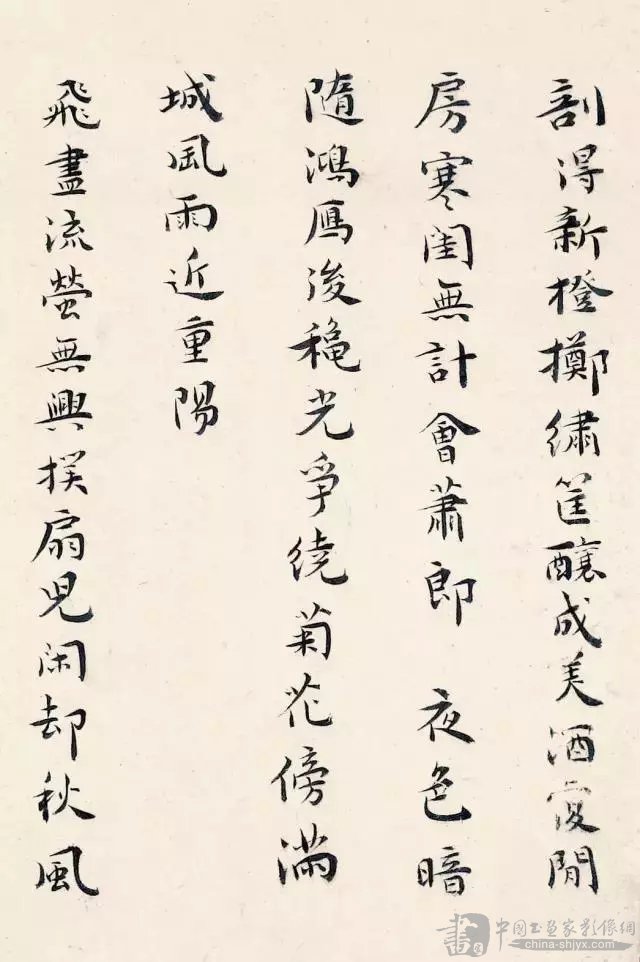 剖得新橙擲繡筐釀成美酒復閒
房寒閨無計會蕭郎　夜色暗
隨鴻雁後龝光爭繞菊花傍滿
城風雨近重陽
飛盡流螢無興撲扇兒閑却秋風
書 中國書畫家影像網
china-shjyx.com